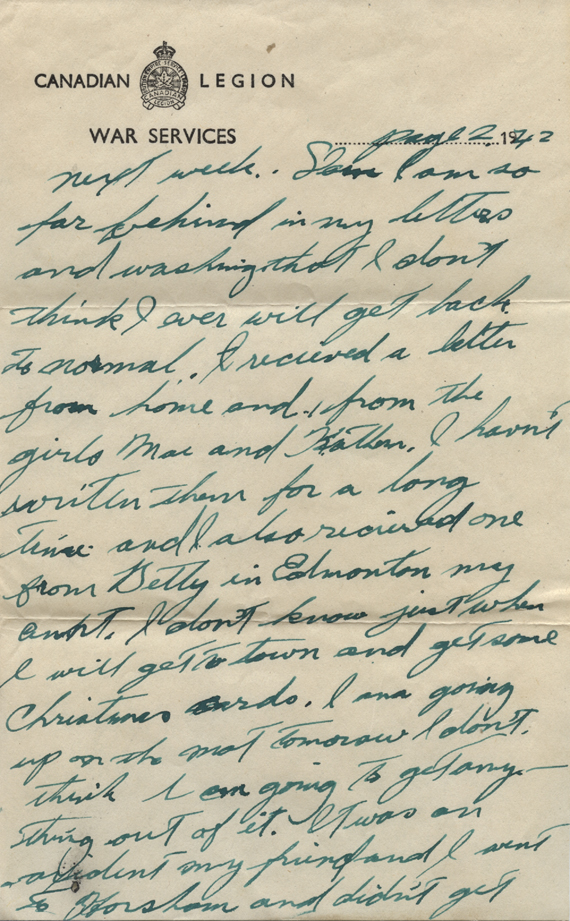 CANADIAN LEGION
WAR SERVICES
page 2. 1942
next week.. I am so
far behind in my letters
and washing that I don't
think I ever will get back
to normal. I recieved a letter
from home and, from the
girls Mae and I havn't
written them for a long
time and I also recieved one
from Betty in Edmonton my
aunt. I don't know just when
I will get to town and get some
Christmas cards. I am going
up on the mat tomorow I don't.
think I am going to get any-
thing out of it. It was an
accident my friend and I went
to Horsham and didn't get